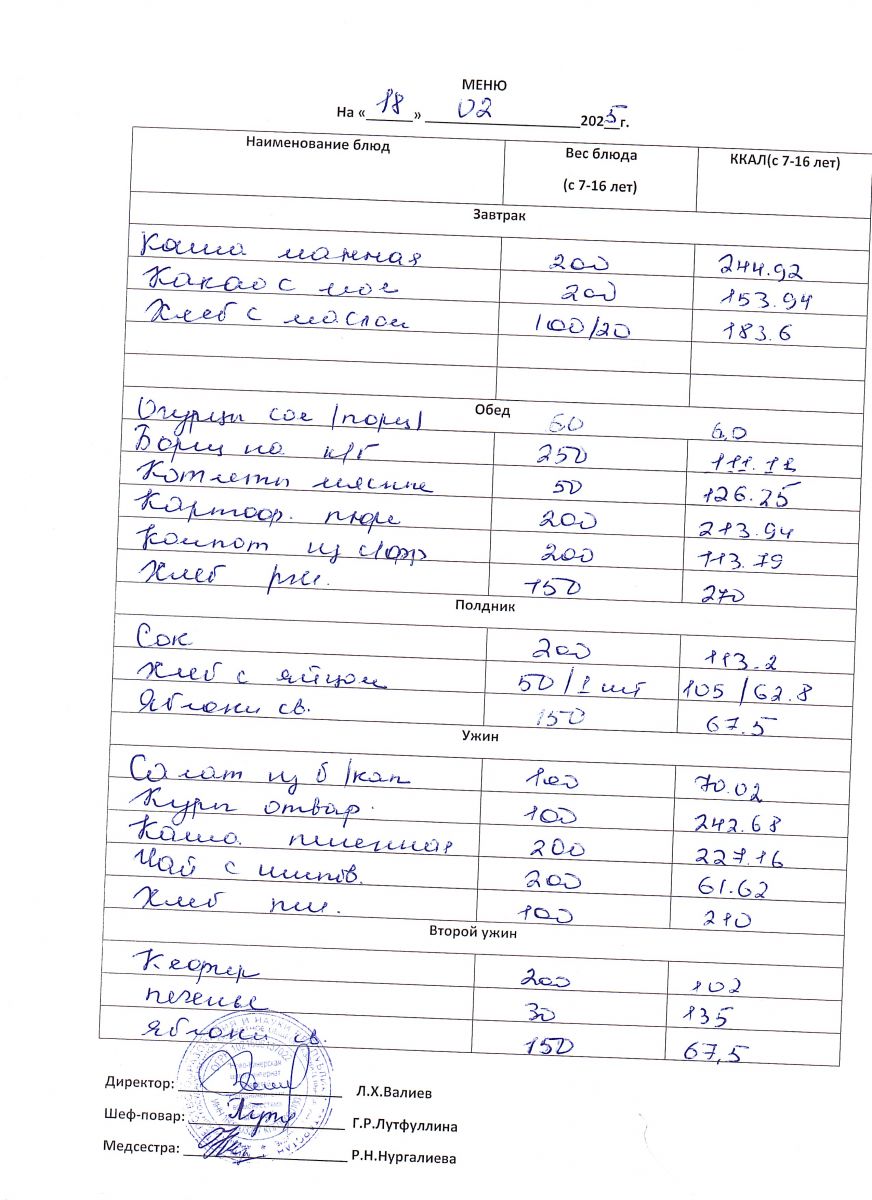 МЕНЮ
На «18» 02 2025г.
Наименование блюд Вес блюда (с 7-16 лет) ККАЛ(с 7-16 лет)
Завтрак
Каша манная 200 244.92
Какао с мол 200 153.94
Хлеб с маслом 100/20 183.6
Обед
Огурцы сол /порц/ 60 6,0
Борщ на к/б 250 111.11
Котлеты мясные 50 126.25
Картоф. пюре 200 213.94
Компот из с/фр 200 113.79
Хлеб рж. 150 270
Полдник
Сок 200 113.2
Хлеб с яйцом 50/1 шт 105/62.8
Яблоки св. 150 67.5
Ужин
Салат из б/кап 100 70.02
Куры отвар. 100 242.68
Каша пшенная 200 227.16
Чай с шипов. 200 61.62
Хлеб пш. 100 210
Второй ужин
Кефир 200 102
печенье 30 135
Яблоки св. 150 67,5
Директор: Л.Х.Валиев
Шеф-повар: Г.Р.Лутфуллина
Медсестра: Р.Н.Нургалиева